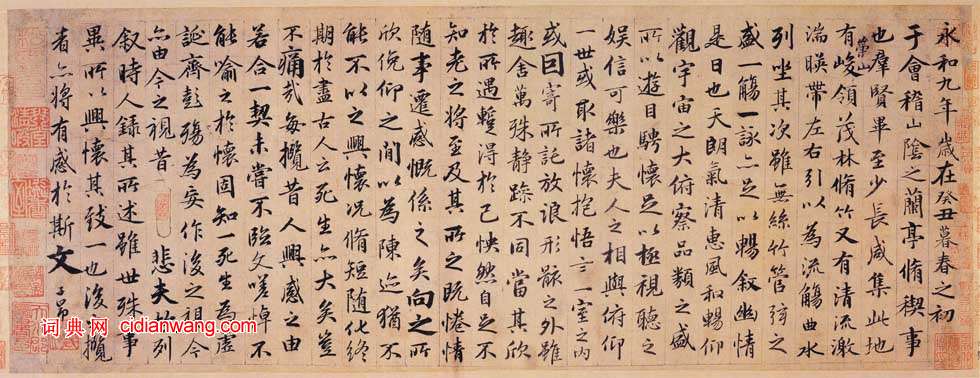 永和九年歲在癸丑暮春之初
于會稽山陰之蘭亭脩稧事
也羣賢畢至少長咸集此地
有崇山峻領茂林脩竹又有清流激
湍暎帶左右引以為流觴曲水
列坐其次雖無絲竹管弦之
盛一觴一詠亦足以暢敘幽情
是日也天朗氣清惠風和暢仰
觀宇宙之大俯察品類之盛
所以遊目騁懷足以極視聽之
娛信可樂也夫人之相與俯仰
一世或取諸懷抱悟言一室之內
或因寄所託放浪形骸之外雖
趣舍萬殊静躁不同當其欣
於所遇蹔得於己怏然自足不
知老之將至及其所之既惓情
隨事遷感慨係之矣向之所
欣俛仰之閒以為陳迹猶不
能不以之興懷況脩短隨化終
期於盡古人云死生亦大矣豈
不痛哉每攬昔人興感之由
若合一契未嘗不臨文嗟悼不
能喻之於懷固知一死生為虛
誕齊彭殤為妄作後之視今
亦由今之視昔 悲夫故列
敘時人錄其所述雖世殊事
異所以興懷其致一也後之攬
者亦將有感於斯文 子昂
词典网 cidianwang.com